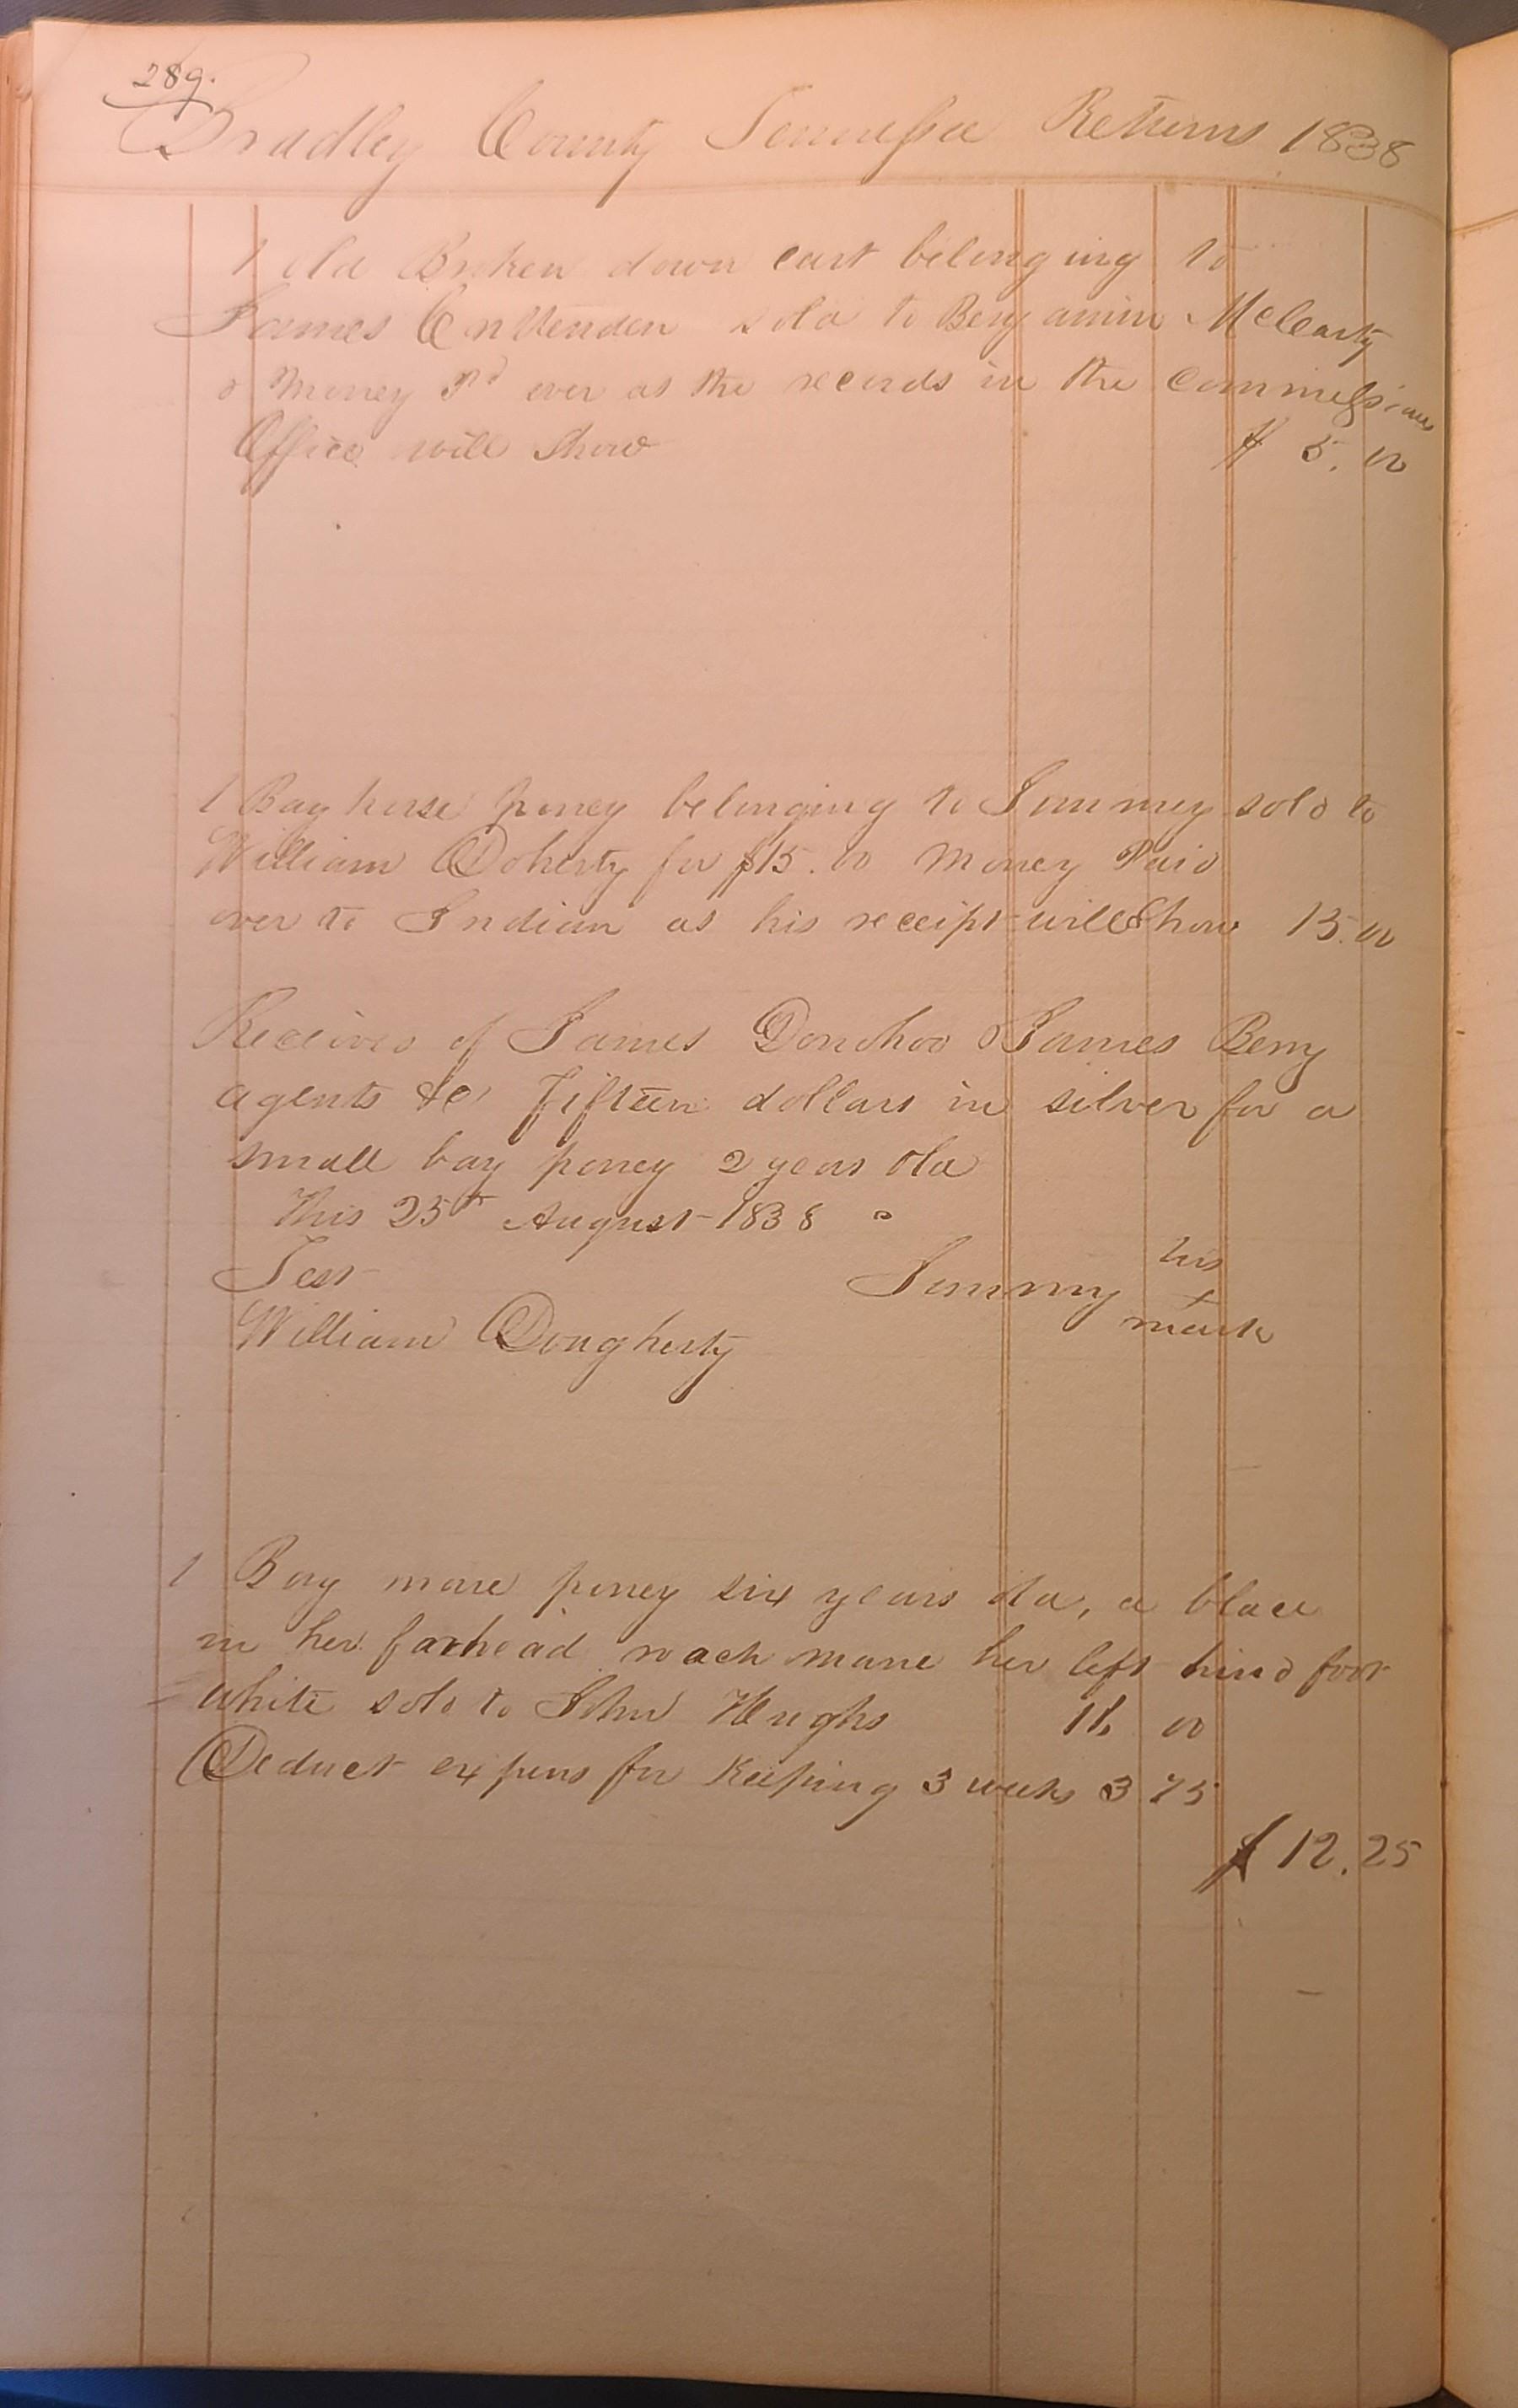 289.
Bradley County Tennessee Returns 1838
1 old Broken down cart belonging to
James Crittenden sold to Benjamin McCarty
& Money Pd over as the records in the Commissioners
Office will Show $ 5.00
1 Bay horse poney belonging to Jimmey sold to
William Doherty for $15.00 Money Paid
over to Indian as his receipt will Show 15.00
Received of James Donohoo & James Berry
agents &c Fifteen dollars in silver for a
small bay poney 2 years old
This 25th August 1838
his
Test Jimmy +
William Dougherty mark
1 Bay mare poney six years old, a blace
in her farhead roach mane her left hind foot
white sold to John Hughs 16 00
Deduct expens for Keeping 3 weeks 3 75
$ 12.25